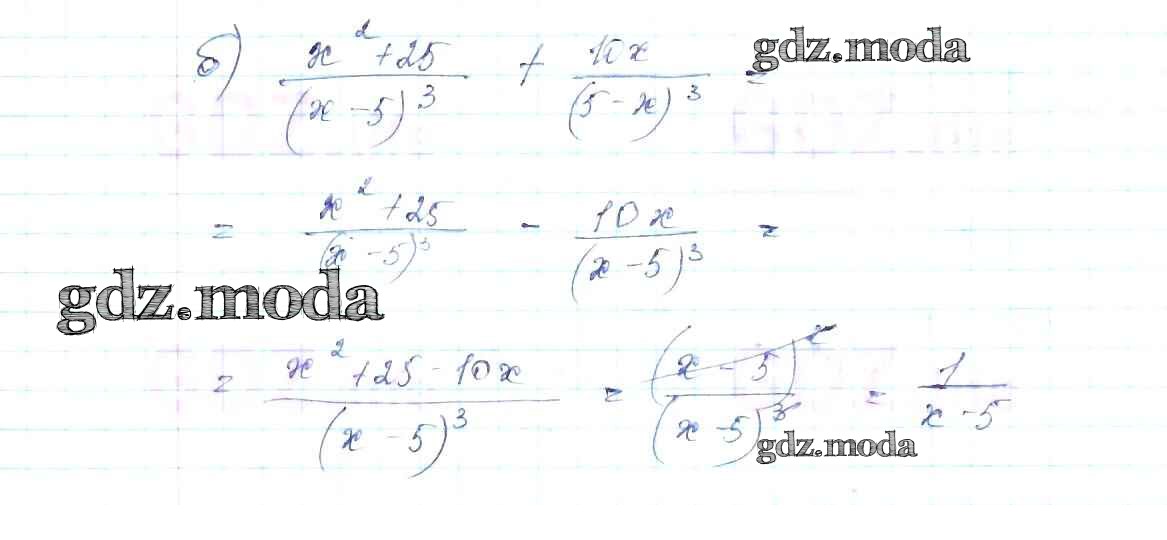 б) (x² + 25)/(x - 5)³ + 10x/(5 - x)³ = gdz.moda
= (x² + 25)/(x - 5)³ - 10x/(x - 5)³ =
gdz.moda
= (x² + 25 - 10x)/(x - 5)³ = (x - 5)²/(x - 5)³ = 1/(x - 5)
gdz.moda